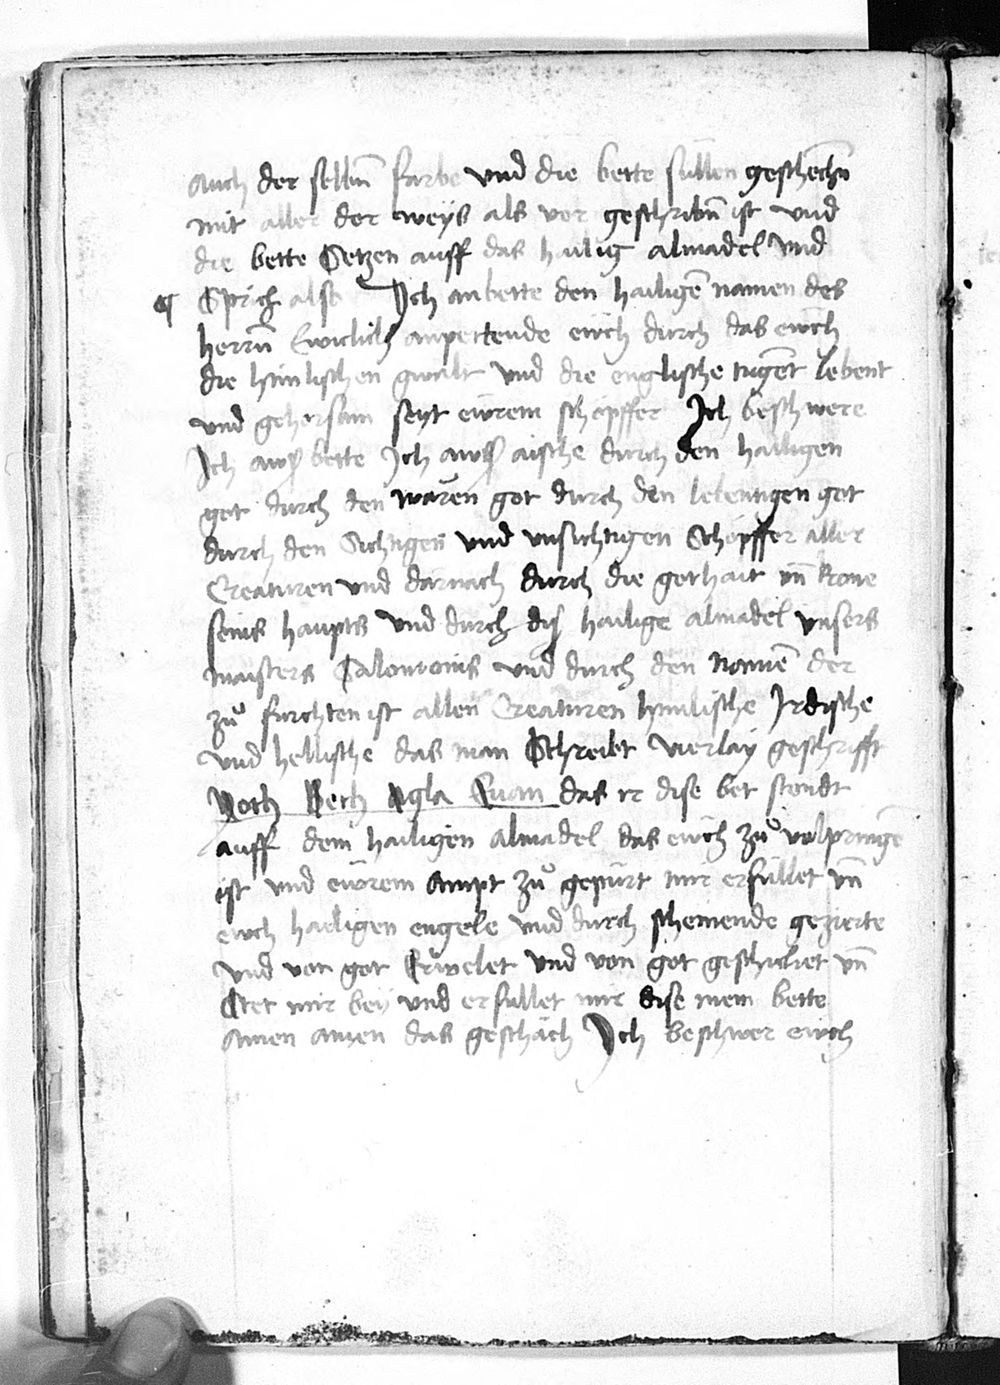 auch der selbñ farbe und die bette süllen geschechñ
mit aller der weyß als vor geschribñ ist und
die bette Setzen auff das hailig almadel und
¶ Sprich also Ich anbette den hailigẽ namen des
herrñ Ewiclich anpettende euch durch das euch
die himlischen gwalt und die englische tugẽt lebent
und gehorsam seyt ewrem schöpffer Ich beschwere
Ich bette Ich aische durch den hailigen
got durch den waren got durch den lebentigen got
durch den Sichtigen und unsichtigen Schöpffer aller
Creaturen und darnach durch die gothait uñ krone
seins haupts und durch diß hailige almadel unsers
maisters Salomonis und durch den namẽ der
zů furchten ist allen Creaturen himlische Irdische
und hellische das man Schreibt vierlay geschrifft
Joth Heth Agla das ir dise bet stendt
auff dem hailigen almadel das euch zů volpringẽ
ist und ewrem ampt zů gepürt mir erfüllet uñ
euch hailigen engele und durch scheinende gezierte
und von got Erwelet und von got geschicket uñ
Stet mir bey und erfullet mir dise mein bette
Amen amen das geschäch Ich beschwer euch